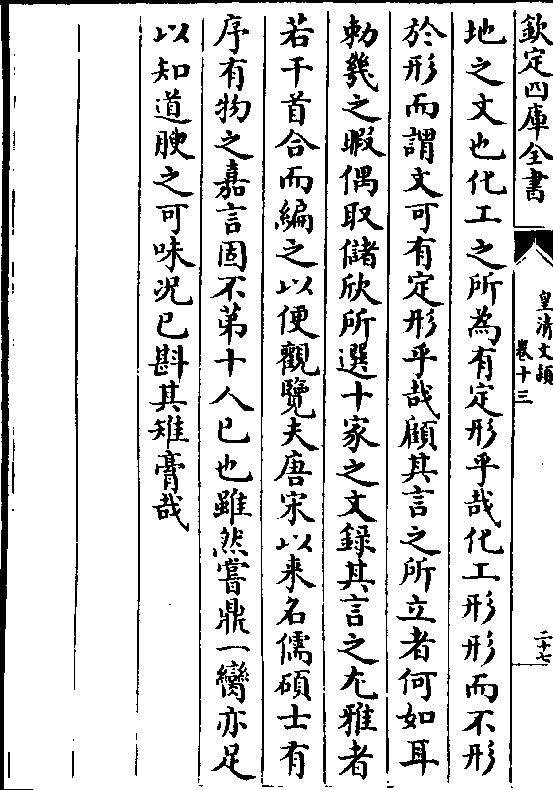 欽定四庫全書
皇清文頴
卷十三
二十七
地之文也化工之所為有定形乎哉化工形形而不形
於形而謂文可有定形乎哉顧其言之所立者何如耳
勅幾之暇偶取儲欣所選十家之文錄其言之尤雅者
若干首合而編之以便觀覽夫唐宋以来名儒碩士有
序有物之嘉言固不第十人已也雖然嘗鼎一臠亦足
以知道腴之可味况已斟其雉膏哉